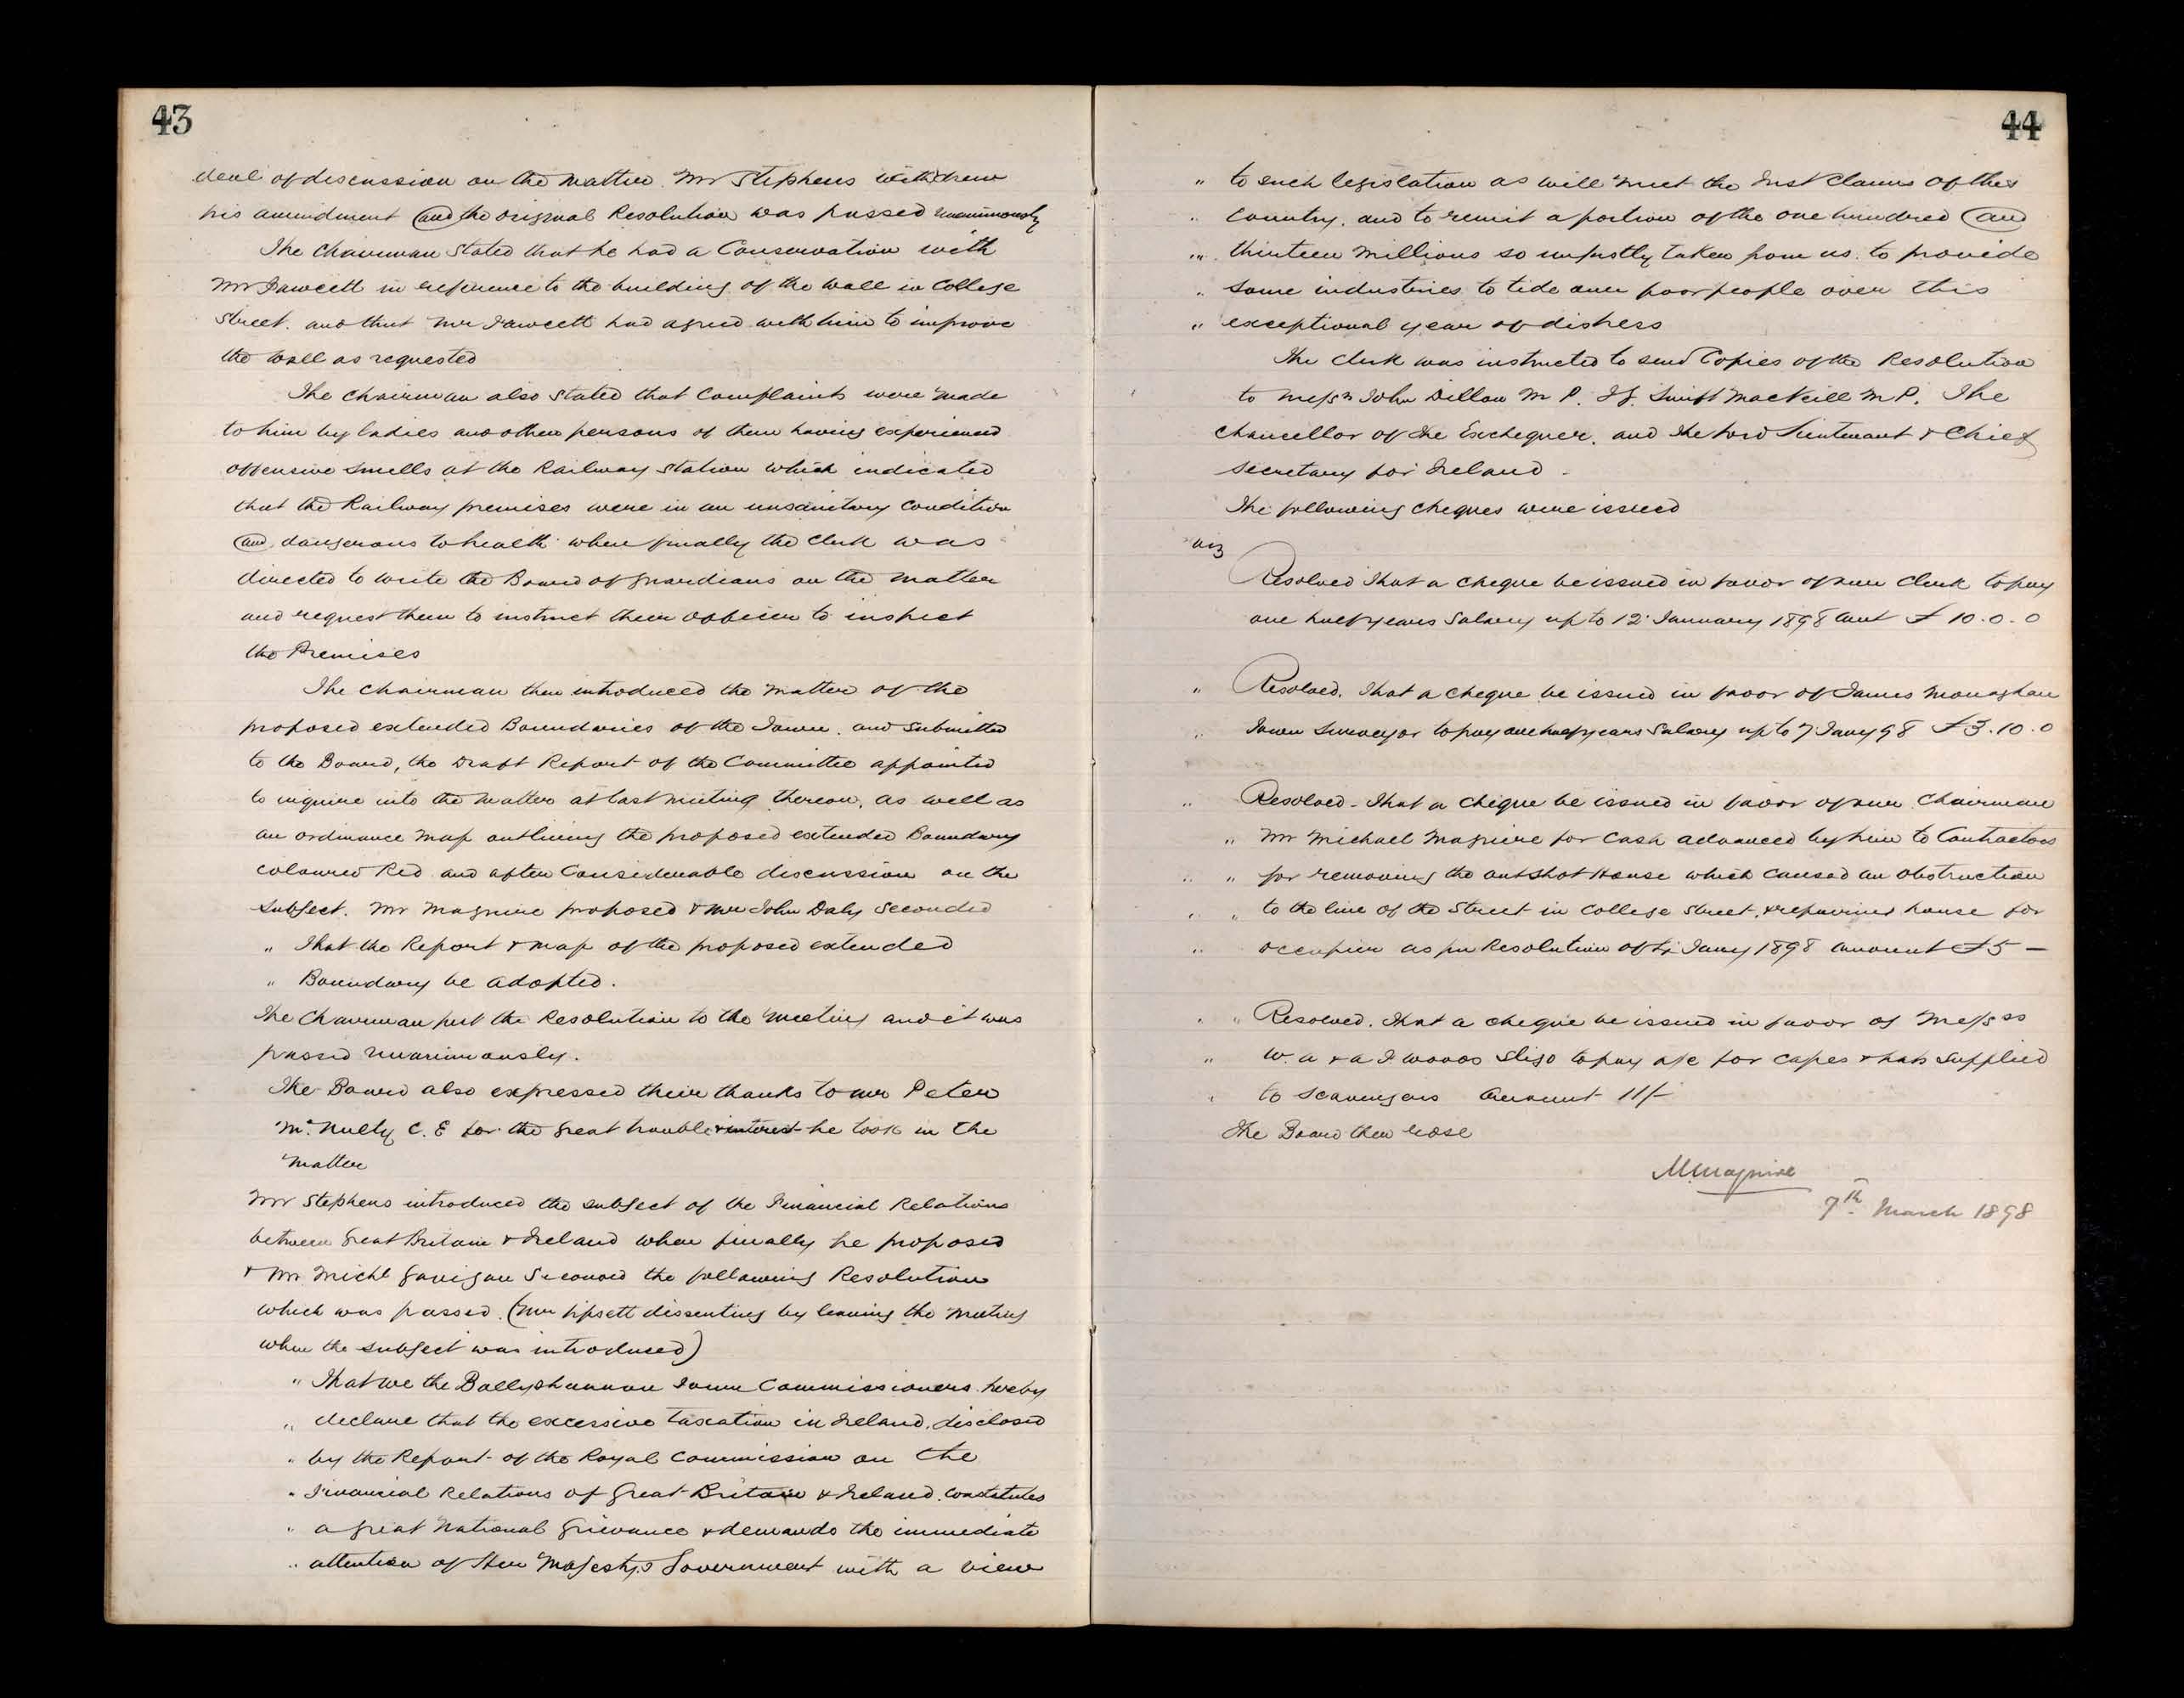 43
deal of discussion on the matter. Mr Stephens withdrew
his amendment and the original Resolution was passed unanimously
The Chairman stated that he had a Conservation with
Mr Fawcett in reference to the building of the wall in College
Street. and that Mr Fawcett had agreed with him to improve
the wall as requested
The Chairman also stated that Complaints were made
to him by ladies and other persons of them having experienced
offensive smells at the Railway Station which indicated
that the Railway premises were in an unsanitary condition
and dangerous to health when finally the Clerk was
directed to write the Board of Guardians on the matter
and request them to instruct their officer to inspect
the Premises
The Chairman then introduced the matter of the
proposed extended Boundaries of the Town. and submitted
to the Board, the Draft Report of the Committee appointed
to inquire into the matter at last meeting thereon, as well as
an ordinance map outlining the proposed extended Boundary
coloured Red and after Considerable discussion on the
subject. Mr Maguire proposed & Mr John Daly Seconded
" That the Report & map of the proposed extended
" Boundary be adopted.
The Chairman put the Resolution to the meeting and it was
passed unanimously.
The Board also expressed their thanks to Mr Peter
Mc Nulty C. E for the great trouble & interest he took in the
matter
Mr Stephens introduced the subject of the Financial Relations
between Great Britain & Ireland when finally he proposed
& Mr Michl Gavigan Seconded the following Resolution
which was passed. (Mr Lipsett dissenting by leaving the meeting
when the subject was introduced)
" That we the Ballyshannon Town Commissioners hereby
" declare that the excessive taxation in Ireland, disclosed
" by the Report of the Royal Commission on the
" Financial Relations of Great Britain & Ireland. constitutes
" a great National Grievance & demands the immediate
" attention of Her Majesty's Government with a view
44
" to such legislation as will meet the Just Claims of this
" Country. and to remit a portion of the one hundred and
" thirteen millions so unjustly taken from us. to provide
" some industries to tide our poor people over this
" exceptional year of distress
The Clerk was instructed to send Copies of the Resolution
to Messrs John Dillon M P. J G. Swift MacNeill M P. The
Chancellor of the Exchequer. and the Lord Lieutenant & Chief
Secretary for Ireland -
The following Cheques were issued
viz
Resolved That a cheque be issued in favor of our Clerk to pay
one half years Salary up to 12 January 1898 amt £ 10.0.0
" Resolved. That a cheque be issued in favor of James Monaghan
" Town Surveyor to pay one half years Salary up to 7 Jany 98 £3.10.0
" Resolved - That a cheque be issued in favor of our Chairman
" Mr Michael Maguire for cash advanced by him to Contractors
" " for removing the outshot House which caused an obstruction
" " to the line of the Street in College Street, & repairing house for
" occupier as per Resolution of Jany 1898 amount £5 —
" " Resolved. That a cheque be issued in favor of Messrs
" W. A & A. F. Woods Sligo to pay a/c for capes & hats supplied
" to scavengers Amount 11/-
The Board then rose
M Maguire
7th March 1898